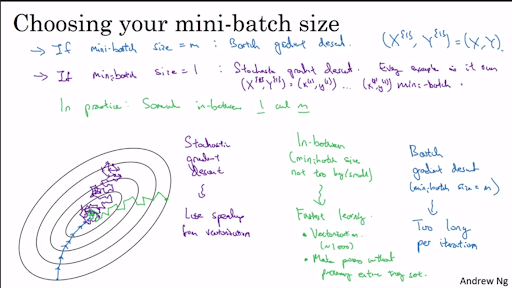 Choosing your mini-batch size
→ If mini-batch size = m : Batch gradient descent. (X^{1}, Y^{1}) = (X, Y).
→ If mini-batch size = 1 : Stochastic gradient descent. Every example is its own
(X^{1}, Y^{1}) = (x^(1), y^(1)) ... mini-batch.
In practice: Somewhere in-between 1 and m
Stochastic
gradient
descent
Lose speedup
from vectorization
In-between
(mini-batch size
not too big/small)
Fastest learning.
• Vectorization.
(~1000)
• Make progress without
processing entire training set.
Batch
gradient descent
(mini-batch size = m)
Too long
per iteration
Andrew Ng